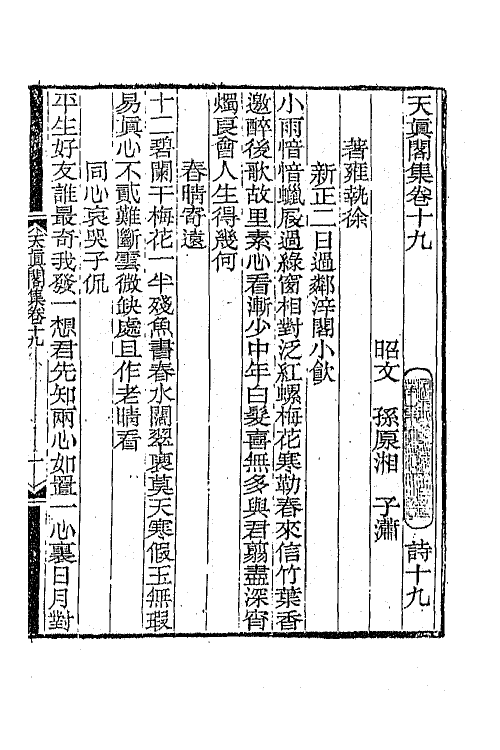 天眞閣集卷十九　詩十九
昭文　孫原湘　子瀟
著雍執徐
新正二日過鄰淬閣小飮
小雨愔愔蠟屐過綠窗相對泛紅螺梅花寒勒春來信竹葉香
邀醉後歌故里素心看漸少中年白髮喜無多與君翦盡深宵
燭良會人生得幾何
春晴寄遠
十二碧闌干梅花一半殘魚書春水闊翠裏莫天寒假玉無瑕
易眞心不貳難斷雲微缺處且作老晴看
同心哀哭子侃
平生好友誰最奇我發一想君先知兩心如置一心裏日月對
天眞閣集卷十九
一